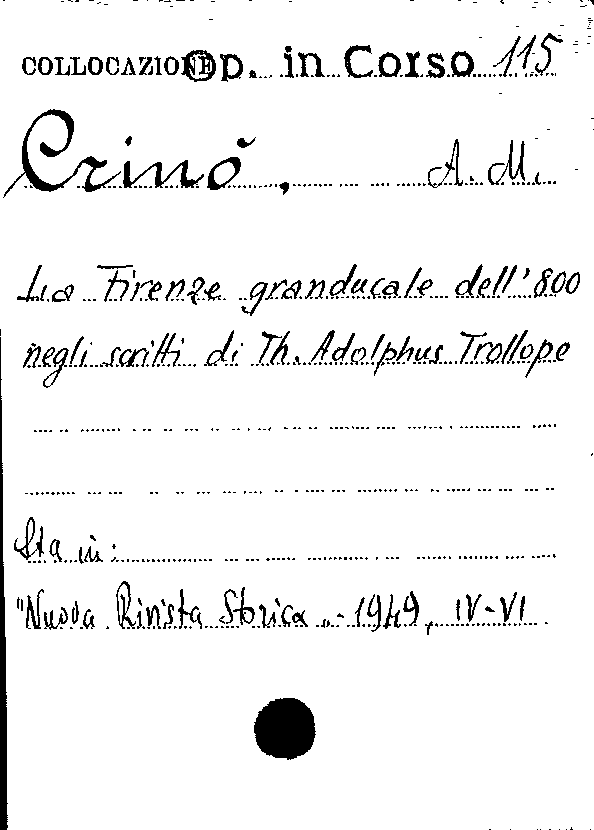 COLLOCAZIONE Op. in Corso 115
Crinò, A. M.
La Firenze granducale dell'800
negli scritti di Th. Adolphus Trollope
Sta in:
"Nuova Rivista Storica„ - 1949, IV-VI